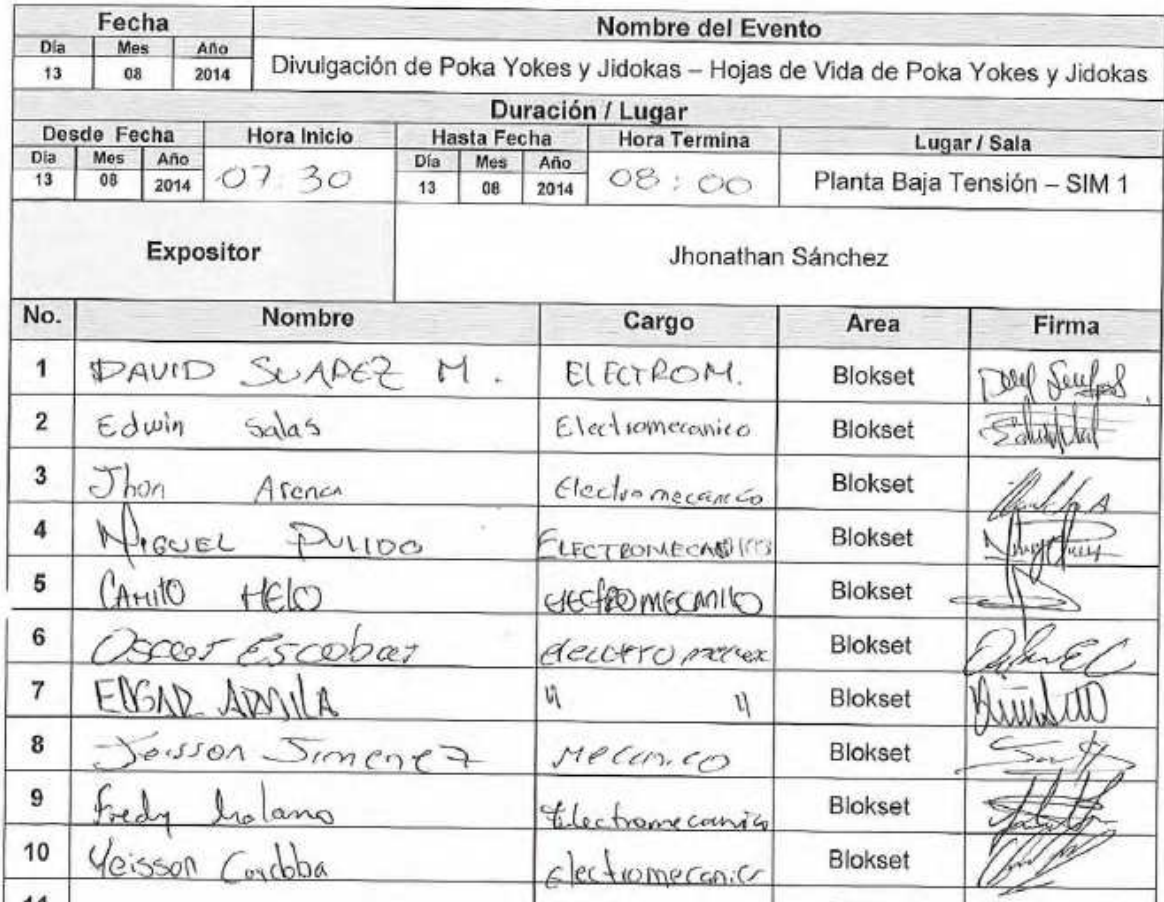 Fecha Nombre del Evento
Día Mes Año
13 08 2014 Divulgación de Poka Yokes y Jidokas – Hojas de Vida de Poka Yokes y Jidokas
Duración / Lugar
Desde Fecha Hora Inicio Hasta Fecha Hora Termina Lugar / Sala
Día Mes Año Día Mes Año
13 08 2014 07:30 13 08 2014 08:00 Planta Baja Tensión – SIM 1
Expositor Jhonathan Sánchez
No. Nombre Cargo Area Firma
1 DAVID SUAREZ M. ELECTROM. Blokset
2 Edwin Salas Electromecanico Blokset
3 Jhon Arena Electromecanico Blokset
4 MIGUEL PULIDO ELECTROMECANICO Blokset
5 CAMILO MELO ELECTROMECANICO Blokset
6 Oscar Escobar Blokset
7 EDGAR " " Blokset
8 Joisson Jimenez Mecanico Blokset
9 Fredy Electromecanico Blokset
10 Yeisson Cordoba electromecanico Blokset
11